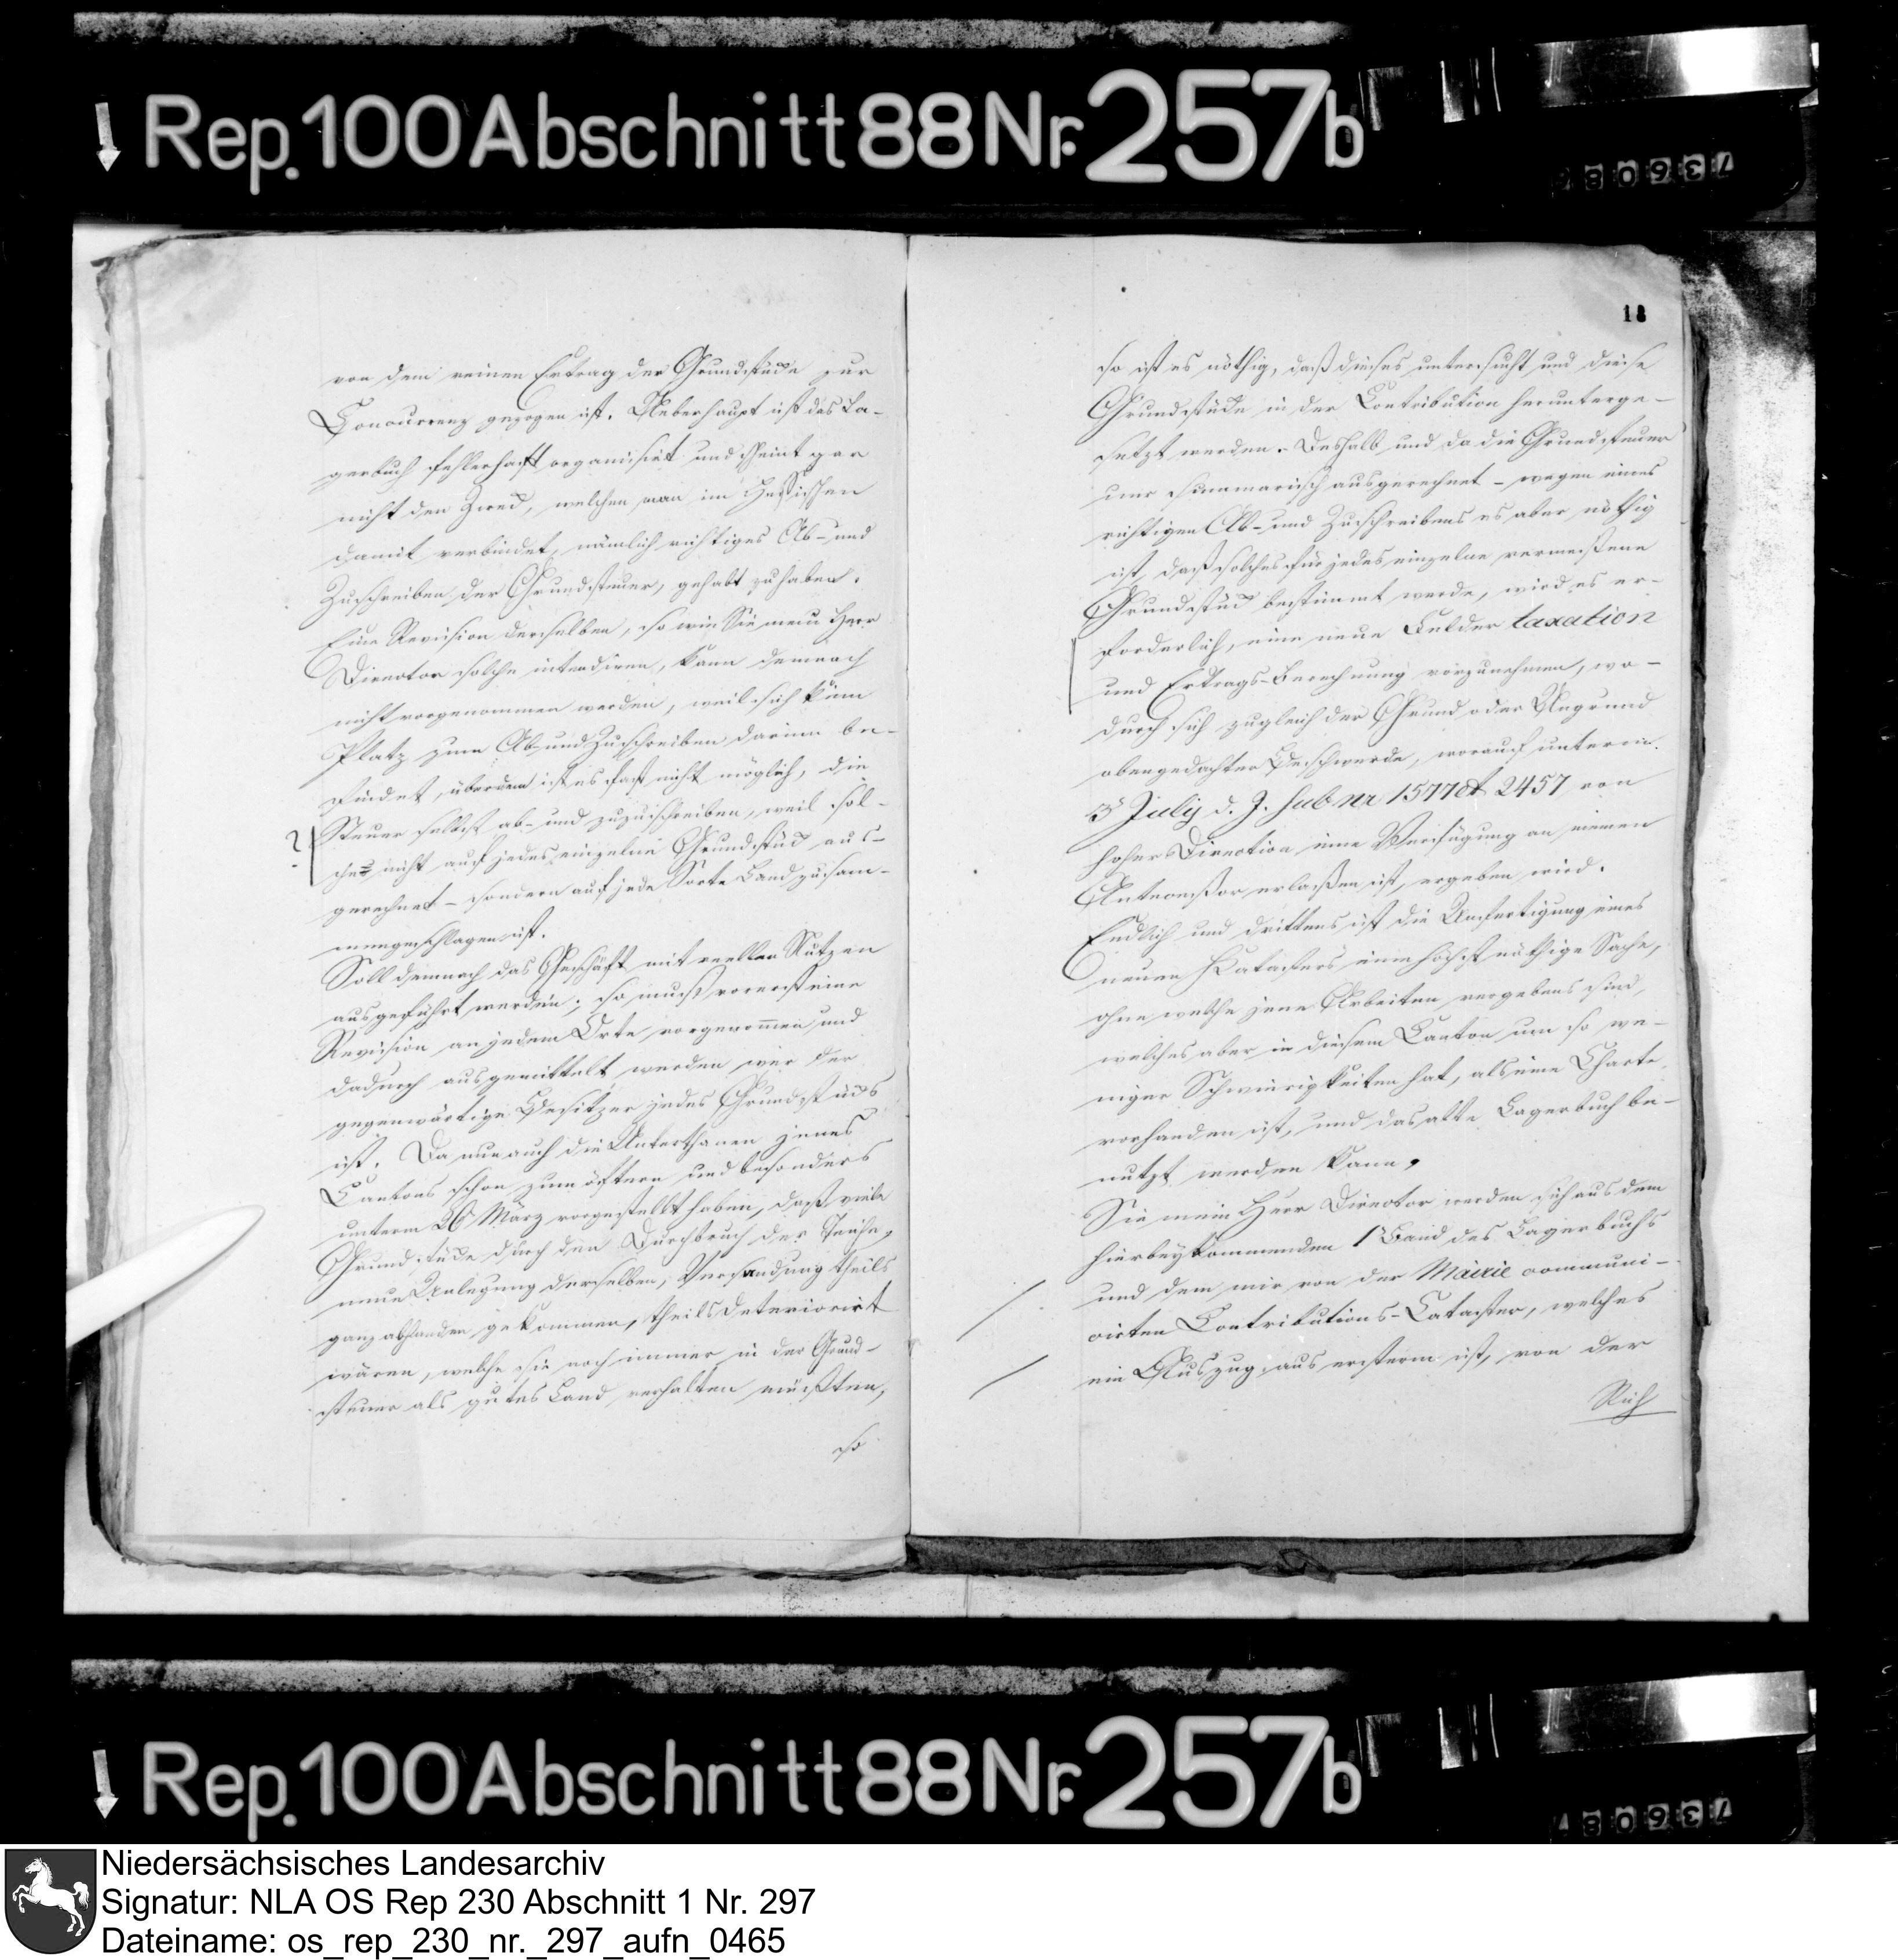 Rep. 100 Abschnitt 88 Nr. 257b
736086
von dem reinen Ertrag der Grundstücke zur
Concurrenz gezogen ist. Ueberhaupt ist das La-
gerbuch fehlerhaft organisirt und scheint gar
nicht den Zweck, welchen man im Hessischen
damit verbindet, nämlich richtiges Ab- und
Zuschreiben der Grundsteuer, gehabt zu haben.
Eine Revision desselben, so wie Sie mein Herr
Director solche intendiren, kann demnach
nicht vorgenommen werden, weil sich kein
Platz zum Ab- und Zuschreiben darinn be-
findet, überdem ist es fast nicht möglich, die
? Steuer selbst ab- und zuzuschreiben, weil sol-
che nicht auf jedes einzelne Grundstück aus-
gerechnet – sondern auf jede Sorte Land zusam-
mengeschlagen ist.
Soll demnach das Geschäft mit reellen Nutzen
ausgeführt werden; so muß vorerst eine
Revision an jedem Orte vorgenommen, und
dadurch ausgemittelt werden wer der
gegenwärtige Besitzer jedes Grundstücks
ist. Da nun auch die Unterthanen jenes
Cantons schon zum öftern und besonders
unterm 26 März vorgestellt haben, daß viele
Grundstücke durch den Durchbruch der Deiche,
neue Anlegung derselben, Versandung theils
ganz abhanden gekommen, theils deteriorirt
wären, welche sie noch immer in der Grund-
steuer als gutes Land verhalten müßten,
so
18
so ist es nöthig, daß dieses untersucht und diese
Grundstücke in der Contribution herunterge-
setzt werden. Deshalb und da die Grundsteuer
nur summarisch ausgerechnet – wegen eines
richtigen Ab- und Zuschreibens es aber nöthig
ist, daß solches für jedes einzelne vermessene
Grundstück bestimmt werde, wird es er-
forderlich, eine neue Felder taxation
und Ertrags-Berechnung vorzunehmen, wo-
durch sich zugleich der Grund oder Ungrund
obengedachter Beschwerde, worauf unterm
3 July d. J. sub nr 1577 et 2457 von
hoher Direction eine Verfügung an meinen
Antecessor erlaßen ist, ergeben wird.
Endlich und drittens ist die Anfertigung eines
neuen Catasters eine höchst nöthige Sache,
ohne welche jene Arbeiten vergebens sind,
welches aber in diesem Canton um so we-
niger Schwierigkeiten hat, als eine Charte
vorhanden ist, und das alte Lagerbuch be-
nutzt werden kann.
Sie mein Herr Director werden sich aus dem
hierbeykommenden 1 Band des Lagerbuchs
und dem mir von der Mairie communi-
cirten Contributions-Cataster, welches
ein Auszug aus ersterm ist, von der
Rich
Rep. 100 Abschnitt 88 Nr. 257b
736087
Niedersächsisches Landesarchiv
Signatur: NLA OS Rep 230 Abschnitt 1 Nr. 297
Dateiname: os_rep_230_nr._297_aufn_0465